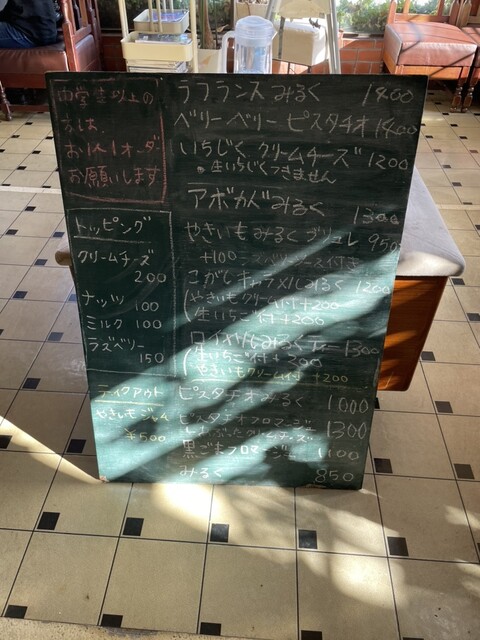 中学生以上の
方は、
お1人1オーダー
お願いします
トッピング
クリームチーズ
200
ナッツ 100
ミルク 100
ラズベリー
150
テイクアウト
やきいも
¥500
ラフランスみるく 1400
ベリーベリーピスタチオ 1400
いちじく クリームチーズ 1200
・生いちじくつきません
アボカドみるく 1300
やきいもみるくブリュレ 950
+100 ラズベリーソース付き
こがしキャラメルみるく 1200
(やきいもクリーム付+200
(生いちご付+200
ロイヤルみるくティー 1300
(生いちご付+200
やきいもクリーム付 +200
ピスタチオみるく 1000
ピスタチオフロマージュ 1300
クリームチーズ
黒ごまフロマージュ 1100
みるく 850